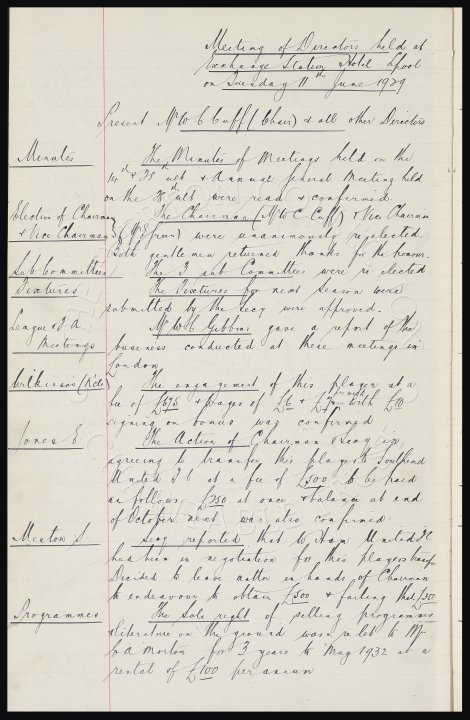 Meeting of Directors held at
Exchange Station Hotel Lpool
on Tuesday 11th June 1929
Present Mr W C Cuff (Chair) & all other Directors
Minutes The Minutes of Meetings held on the
14th & 23rd ult & Annual General Meeting held
on the ult were read & confirmed
Election of Chairman The Chairman (Mr W C Cuff) & Vice Chairman
& Vice Chairman were unanimously reelected
Both gentlemen returned thanks for the honour.
Sub Committees The 3 sub Committees were re-elected
Fixtures The Fixtures for next season were
submitted by the Secy were approved.
League & F.A. Mr W C Gibbins gave a report of the
Meetings business conducted at these meetings in
London
Wilkinson (Jack) The engagement of this player at a
fee of £675 & Wages of £6 & £7 with £10
signing on bonus was confirmed
Jones E. The Action of Chairman & Secy in
agreeing to transfer this player to Southend
United F C at a fee of £500 to be paid
as follows. £250 at once & balance at end
of October next was also confirmed
Meston S. Secy reported that W. Ham United FC
had been in negotiation for this players transfer
Decided to leave matter in hands of Chairman
to endeavour to obtain £500 & failing that £350
Programmes The sole right of selling programmes
& literature on the ground was relet to Mr
Morton for 3 years to May 1932 at a
rental of £100 per annum